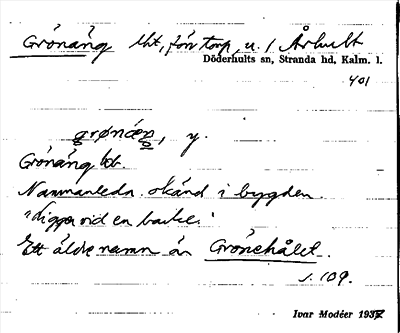 Grönäng lht, förr torp, u. / Århult
Döderhults sn, Stranda hd, Kalm. l.
401
grønæŋ, y.
Grönäng
Namnanledn. okänd i bygden.
ligger vid en backe.
Ett äldre namn är Grönehålet.
s. 109.
Ivar Modéer 193